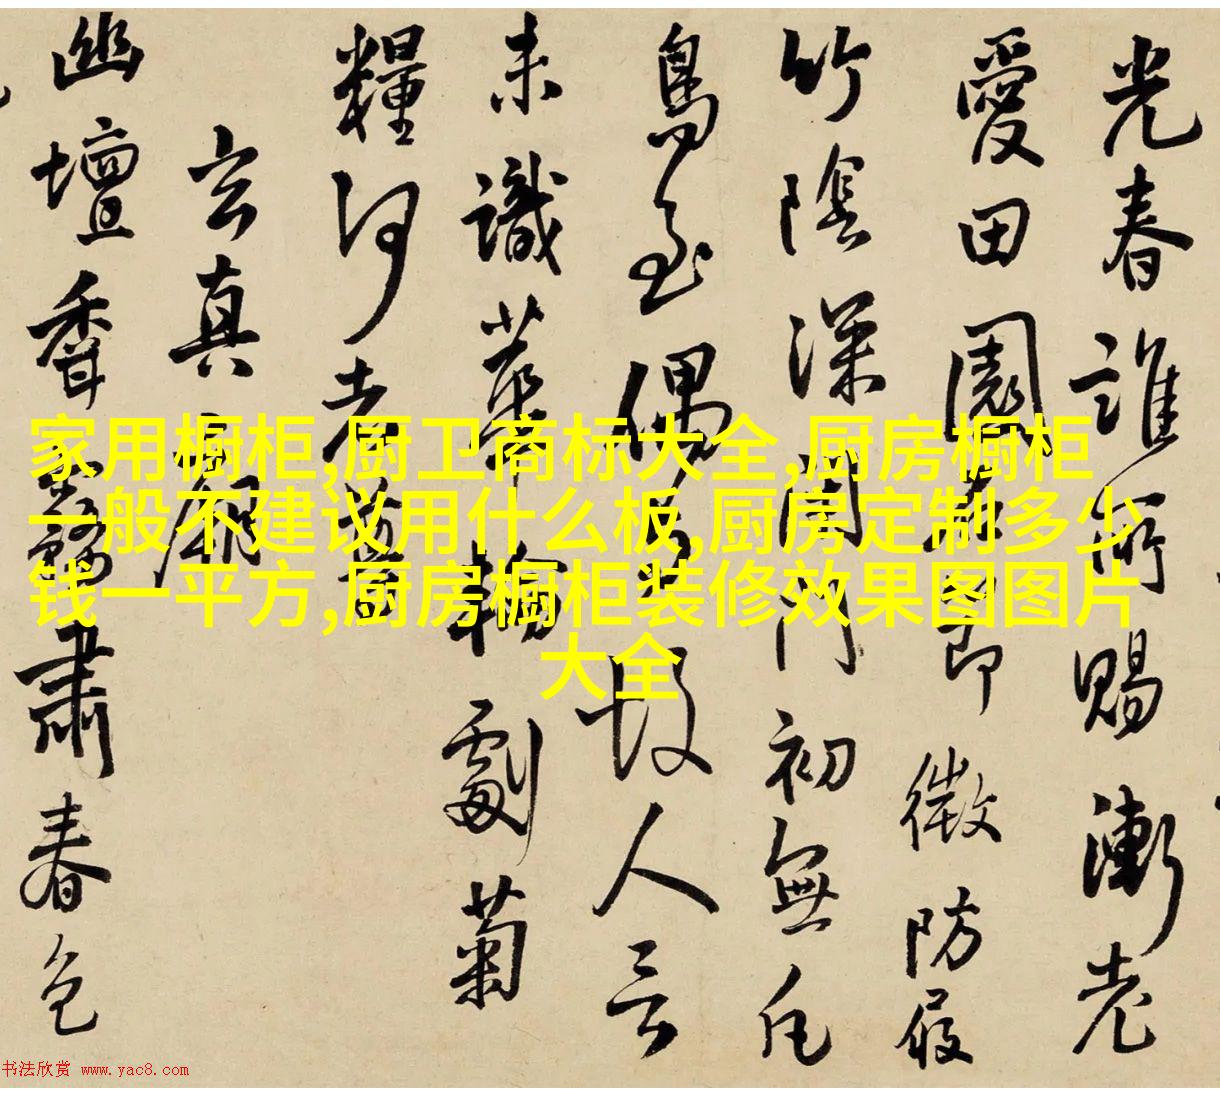 光春誰所賜漸老
愛田園即微防屐
竹陰深閉門初無凡
鳥至偶有故人言
未識劇菊
糧何老
玄真廟
幽壇肅春色
家用橱柜,厨卫商标大全,厨房橱柜
一般不建议用什么板,厨房定制多少
钱一平方,厨房橱柜装修效果图图片
大全
书法欣赏 www.yac8.com